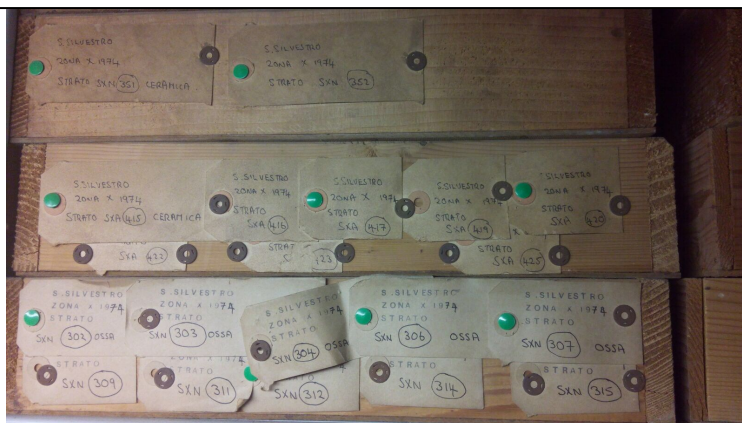 S. SILVESTRO
ZONA X 1974
STRATO SXN 351 CERAMICA
S. SILVESTRO
ZONA X 1974
STRATO SXN 352
S. SILVESTRO
ZONA X 1974
STRATO SXA 415 CERAMICA
S. SILVESTRO
ZONA X 1974
STRATO
SXA 416
S. SILVESTRO
ZONA X 1974
STRATO
SXA 417
S. SILVESTRO
ZONA X 197
STRATO
SXA 419
S. SILVESTRO
ZONA X 1974
STRATO
SXA 420
SXA 422
STRAT
S 423
STRATO
SXA 425
S. SILVESTRO
ZONA X 1974
STRATO
SXN 302 OSSA
S. SILVESTRO
ZONA X 1974
STRATO
SXN 303 OSSA
S. SILVESTRO
ZONA X 1974
STRATO
SXN 304 OSSA
S. SILVESTRO
ZONA X 1974
STRATO
SXN 306 OSSA
S. SILVESTRO
ZONA X 1974
STRATO
SXN 307 OSSA
STRATO
SXN 309
ZONA X 1974
STRATO
SXN 311
SXN 312
STRATO
SXN 314
STRATO
SXN 315